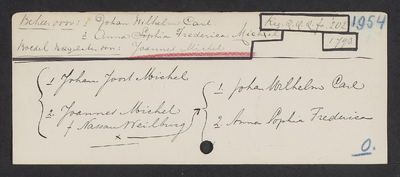 1 Johan Wilhelm Carl 1954
2 Anna Sophia Frederica Michiel
1793
Joannes Michel
1 Johan Joost Michel
1 Johan Wilhelm Carl
2 Joannes Michel
f Nassau Weilburg
2 Anna Sophia Frederica
x
0.